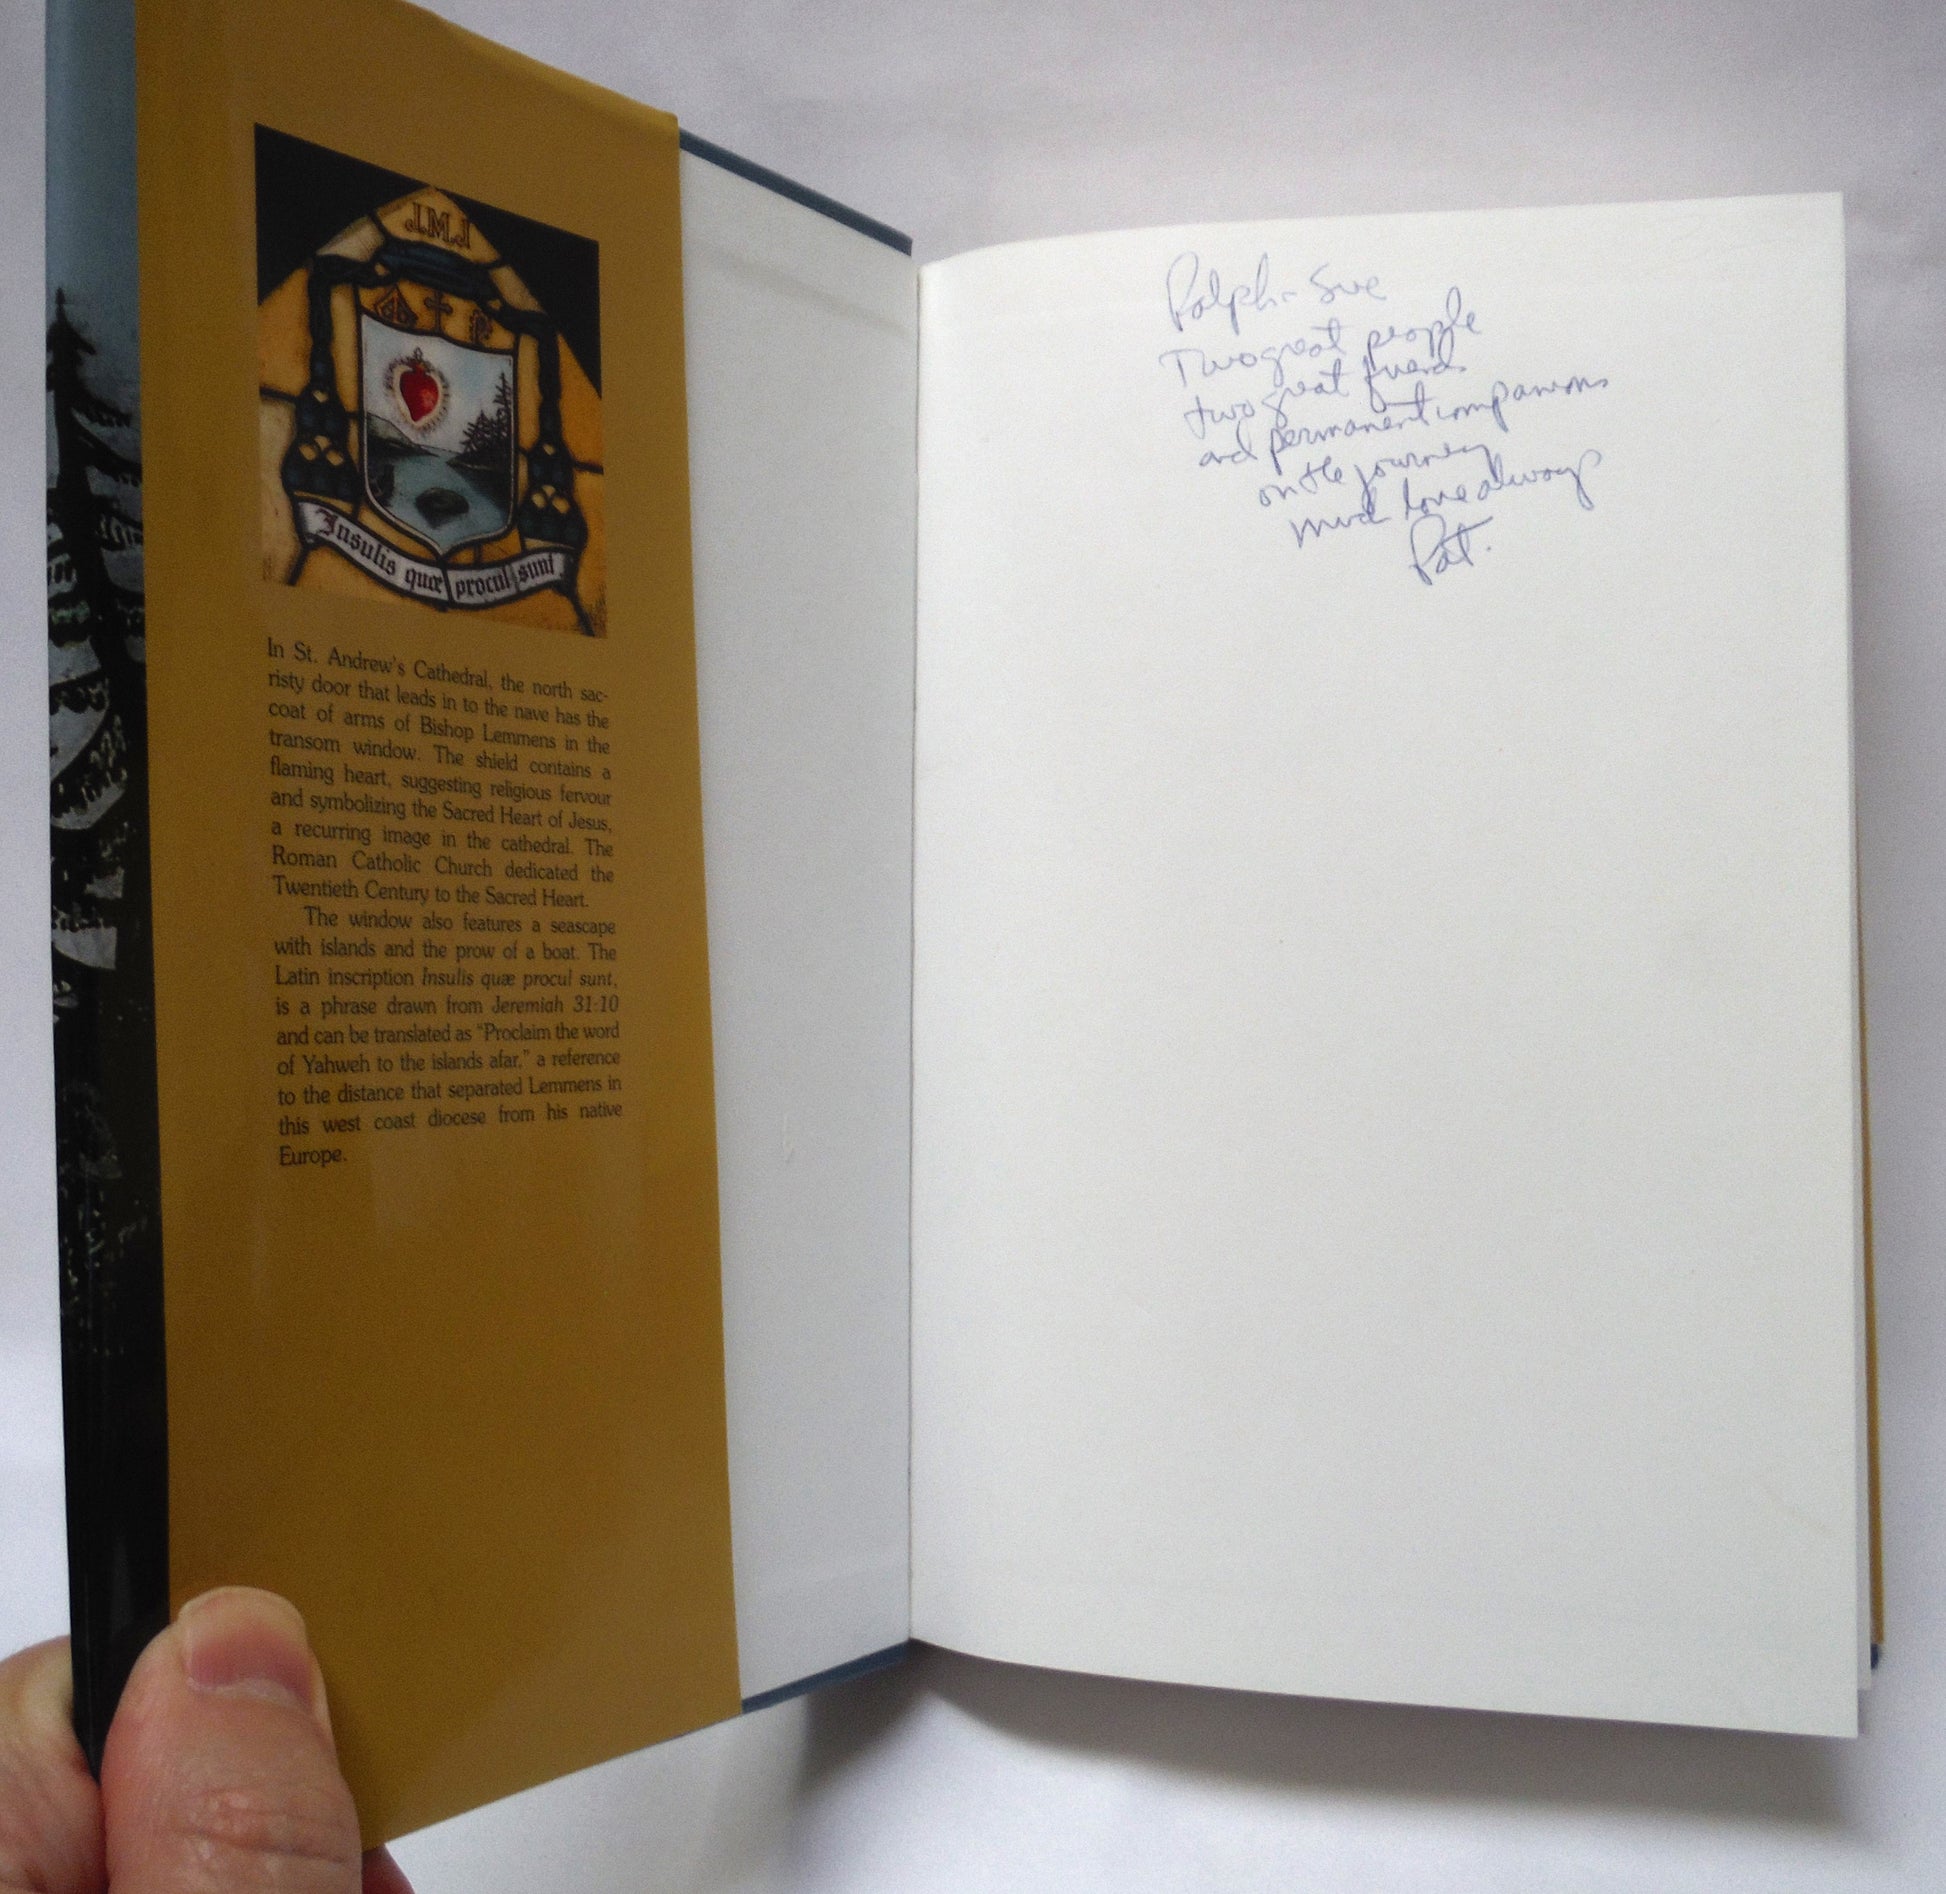 J.M.J
Insulis quæ procul sunt
In St. Andrew's Cathedral, the north sac-
risty door that leads in to the nave has the
coat of arms of Bishop Lemmens in the
transom window. The shield contains a
flaming heart, suggesting religious fervour
and symbolizing the Sacred Heart of Jesus,
a recurring image in the cathedral. The
Roman Catholic Church dedicated the
Twentieth Century to the Sacred Heart.
The window also features a seascape
with islands and the prow of a boat. The
Latin inscription Insulis quæ procul sunt,
is a phrase drawn from Jeremiah 31:10
and can be translated as "Proclaim the word
of Yahweh to the islands afar," a reference
to the distance that separated Lemmens in
this west coast diocese from his native
Europe.
Ralph - Sue
Two great people
two great friends
and permanent companions
on the journey
Much love always
Pat.